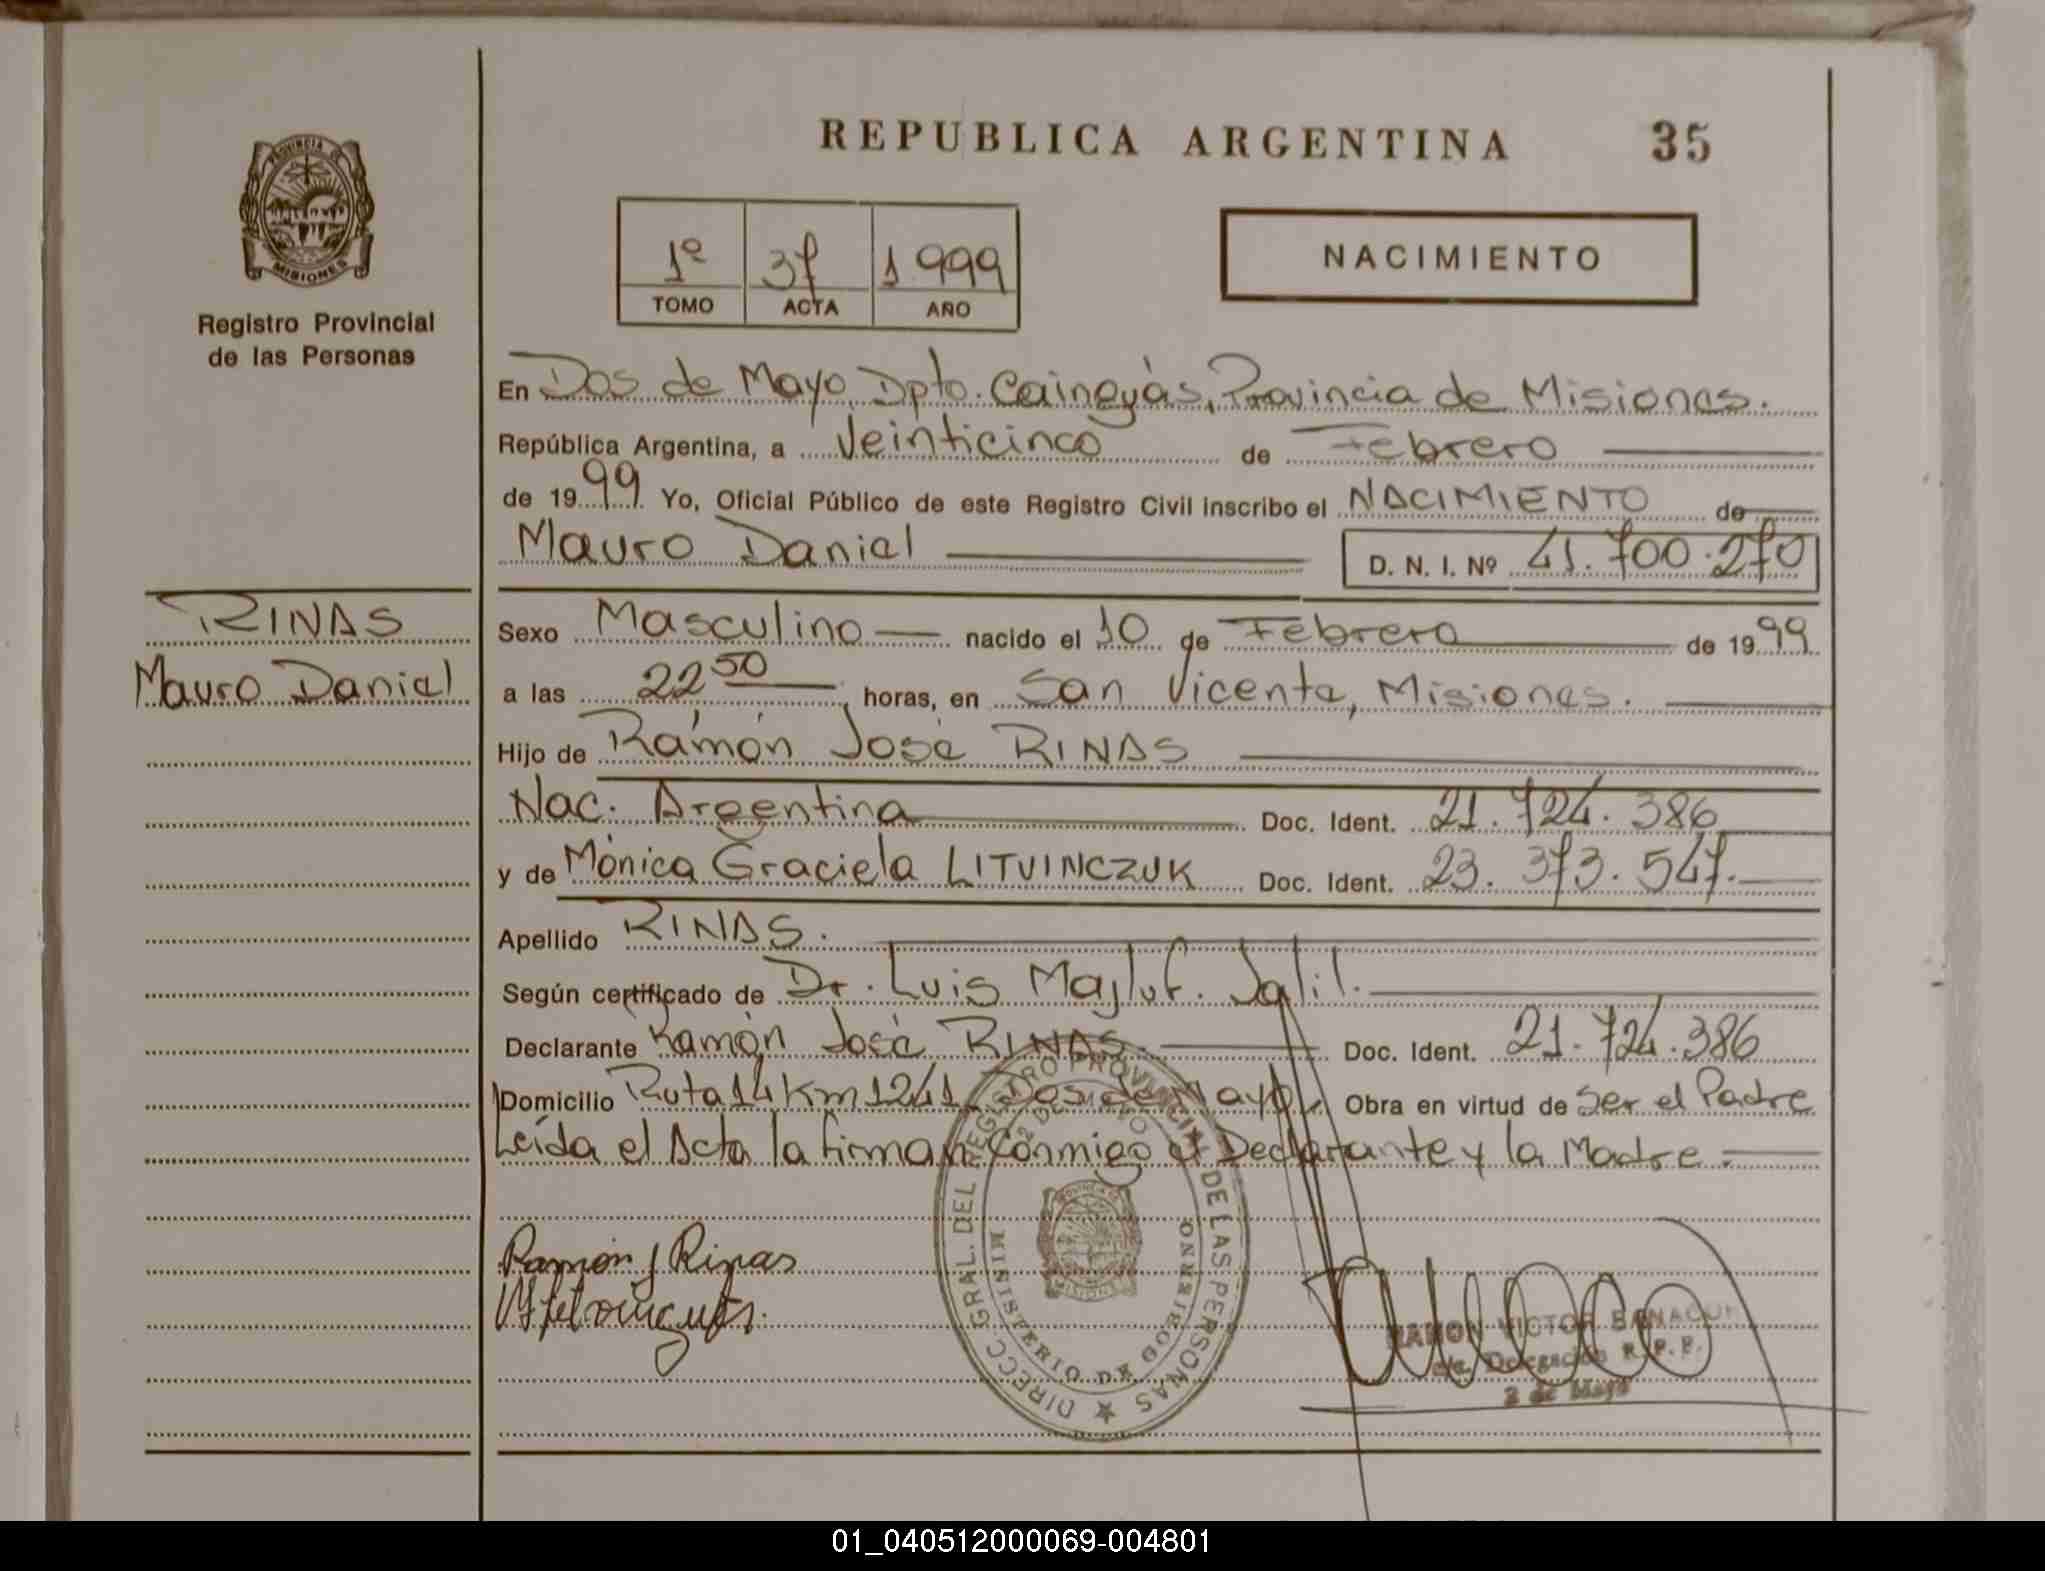 REPUBLICA ARGENTINA 35
PROVINCIA DE
MISIONES
Registro Provincial
de las Personas
1º 37 1999
TOMO ACTA AÑO
NACIMIENTO
En Dos de Mayo, Dpto. Cainguás, Provincia de Misiones.
República Argentina, a Veinticinco de Febrero
de 1999 Yo, Oficial Público de este Registro Civil inscribo el NACIMIENTO de
Mauro Daniel D. N. I. Nº 41.700.270
RINAS
Mauro Daniel
Sexo Masculino nacido el 10 de Febrero de 1999
a las 22 50 horas, en San Vicente, Misiones.
Hijo de Ramón José RINAS
Nac. Argentina Doc. Ident. 21.724.386
y de Mónica Graciela LITVINCZUK Doc. Ident. 23.373.547.
Apellido RINAS.
Según certificado de Dr. Luis Majluf. Jalil.
Declarante Ramón José RINAS. Doc. Ident. 21.724.386
Domicilio Ruta 14 Km 1241, Dos de Mayo, Obra en virtud de Ser el Padre
Leída el Acta la firman Conmigo el Declarante y la Madre.
Ramón J Rinas
DIRECC. GRAL. DEL REGISTRO PROVINCIAL DE LAS PERSONAS
2 DE MAYO
MINISTERIO DE GOBIERNO
PROVINCIA DE
MISIONES
RAMON VICTOR
Delegación R.P.P.
2 de Mayo
01_040512000069-004801